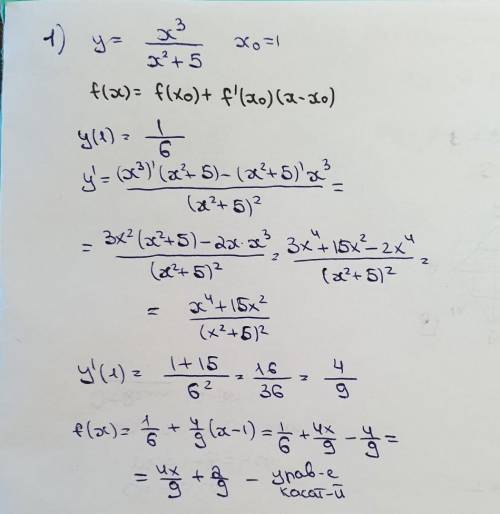 1) y = x³/(x²+5) x₀=1
f(x) = f(x₀) + f'(x₀)(x-x₀)
y(1) = 1/6
y' = ((x³)'(x²+5) - (x²+5)'x³)/(x²+5)² =
= (3x²(x²+5) - 2x·x³)/(x²+5)² = (3x⁴+15x²-2x⁴)/(x²+5)² =
= (x⁴+15x²)/(x²+5)²
y'(1) = (1+15)/6² = 16/36 = 4/9
f(x) = 1/6 + 4/9(x-1) = 1/6 + 4x/9 - 4/9 =
= 4x/9 + 2/9 - урав-е
касат-й